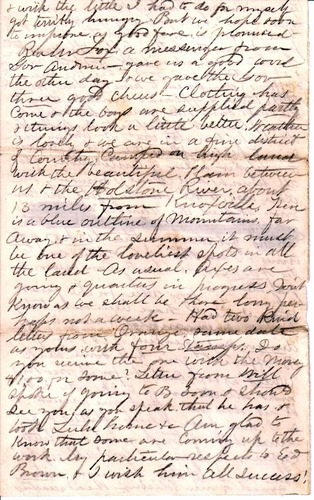 & with the little I had to do for myself
got terribly hungry But we hope soon
to improve & good fare is promised
Parson Fox a messenger from
Gov Andrew – gave us a good word
the other day & we gave the Gov
three good cheers – Clothing has
come & the boys are supplied partly
& things look a little better Weather
is lovely & we are in a fine district
of Country Camped on high land
with the beautiful Plain between
us & the Holstone River. about
13 miles from Knoxville. There
is a blue outline of Mountains far
away & in the summer it must
be one of the loveliest spots in all
the land As usual, are
going & quarters in progress Don't
Know as we shall be there long per-
haps not a week – Had two Kind
letters from Orange same date
as yours with four Do
you receive the one with the Money
$100 or some? Letter from Will
spoke of going to B soon & should
see you as you speak that he has &
took home & Am glad to
Know that some are coming up to the
work My particular respects to Ed
Brown & I wish him all success!